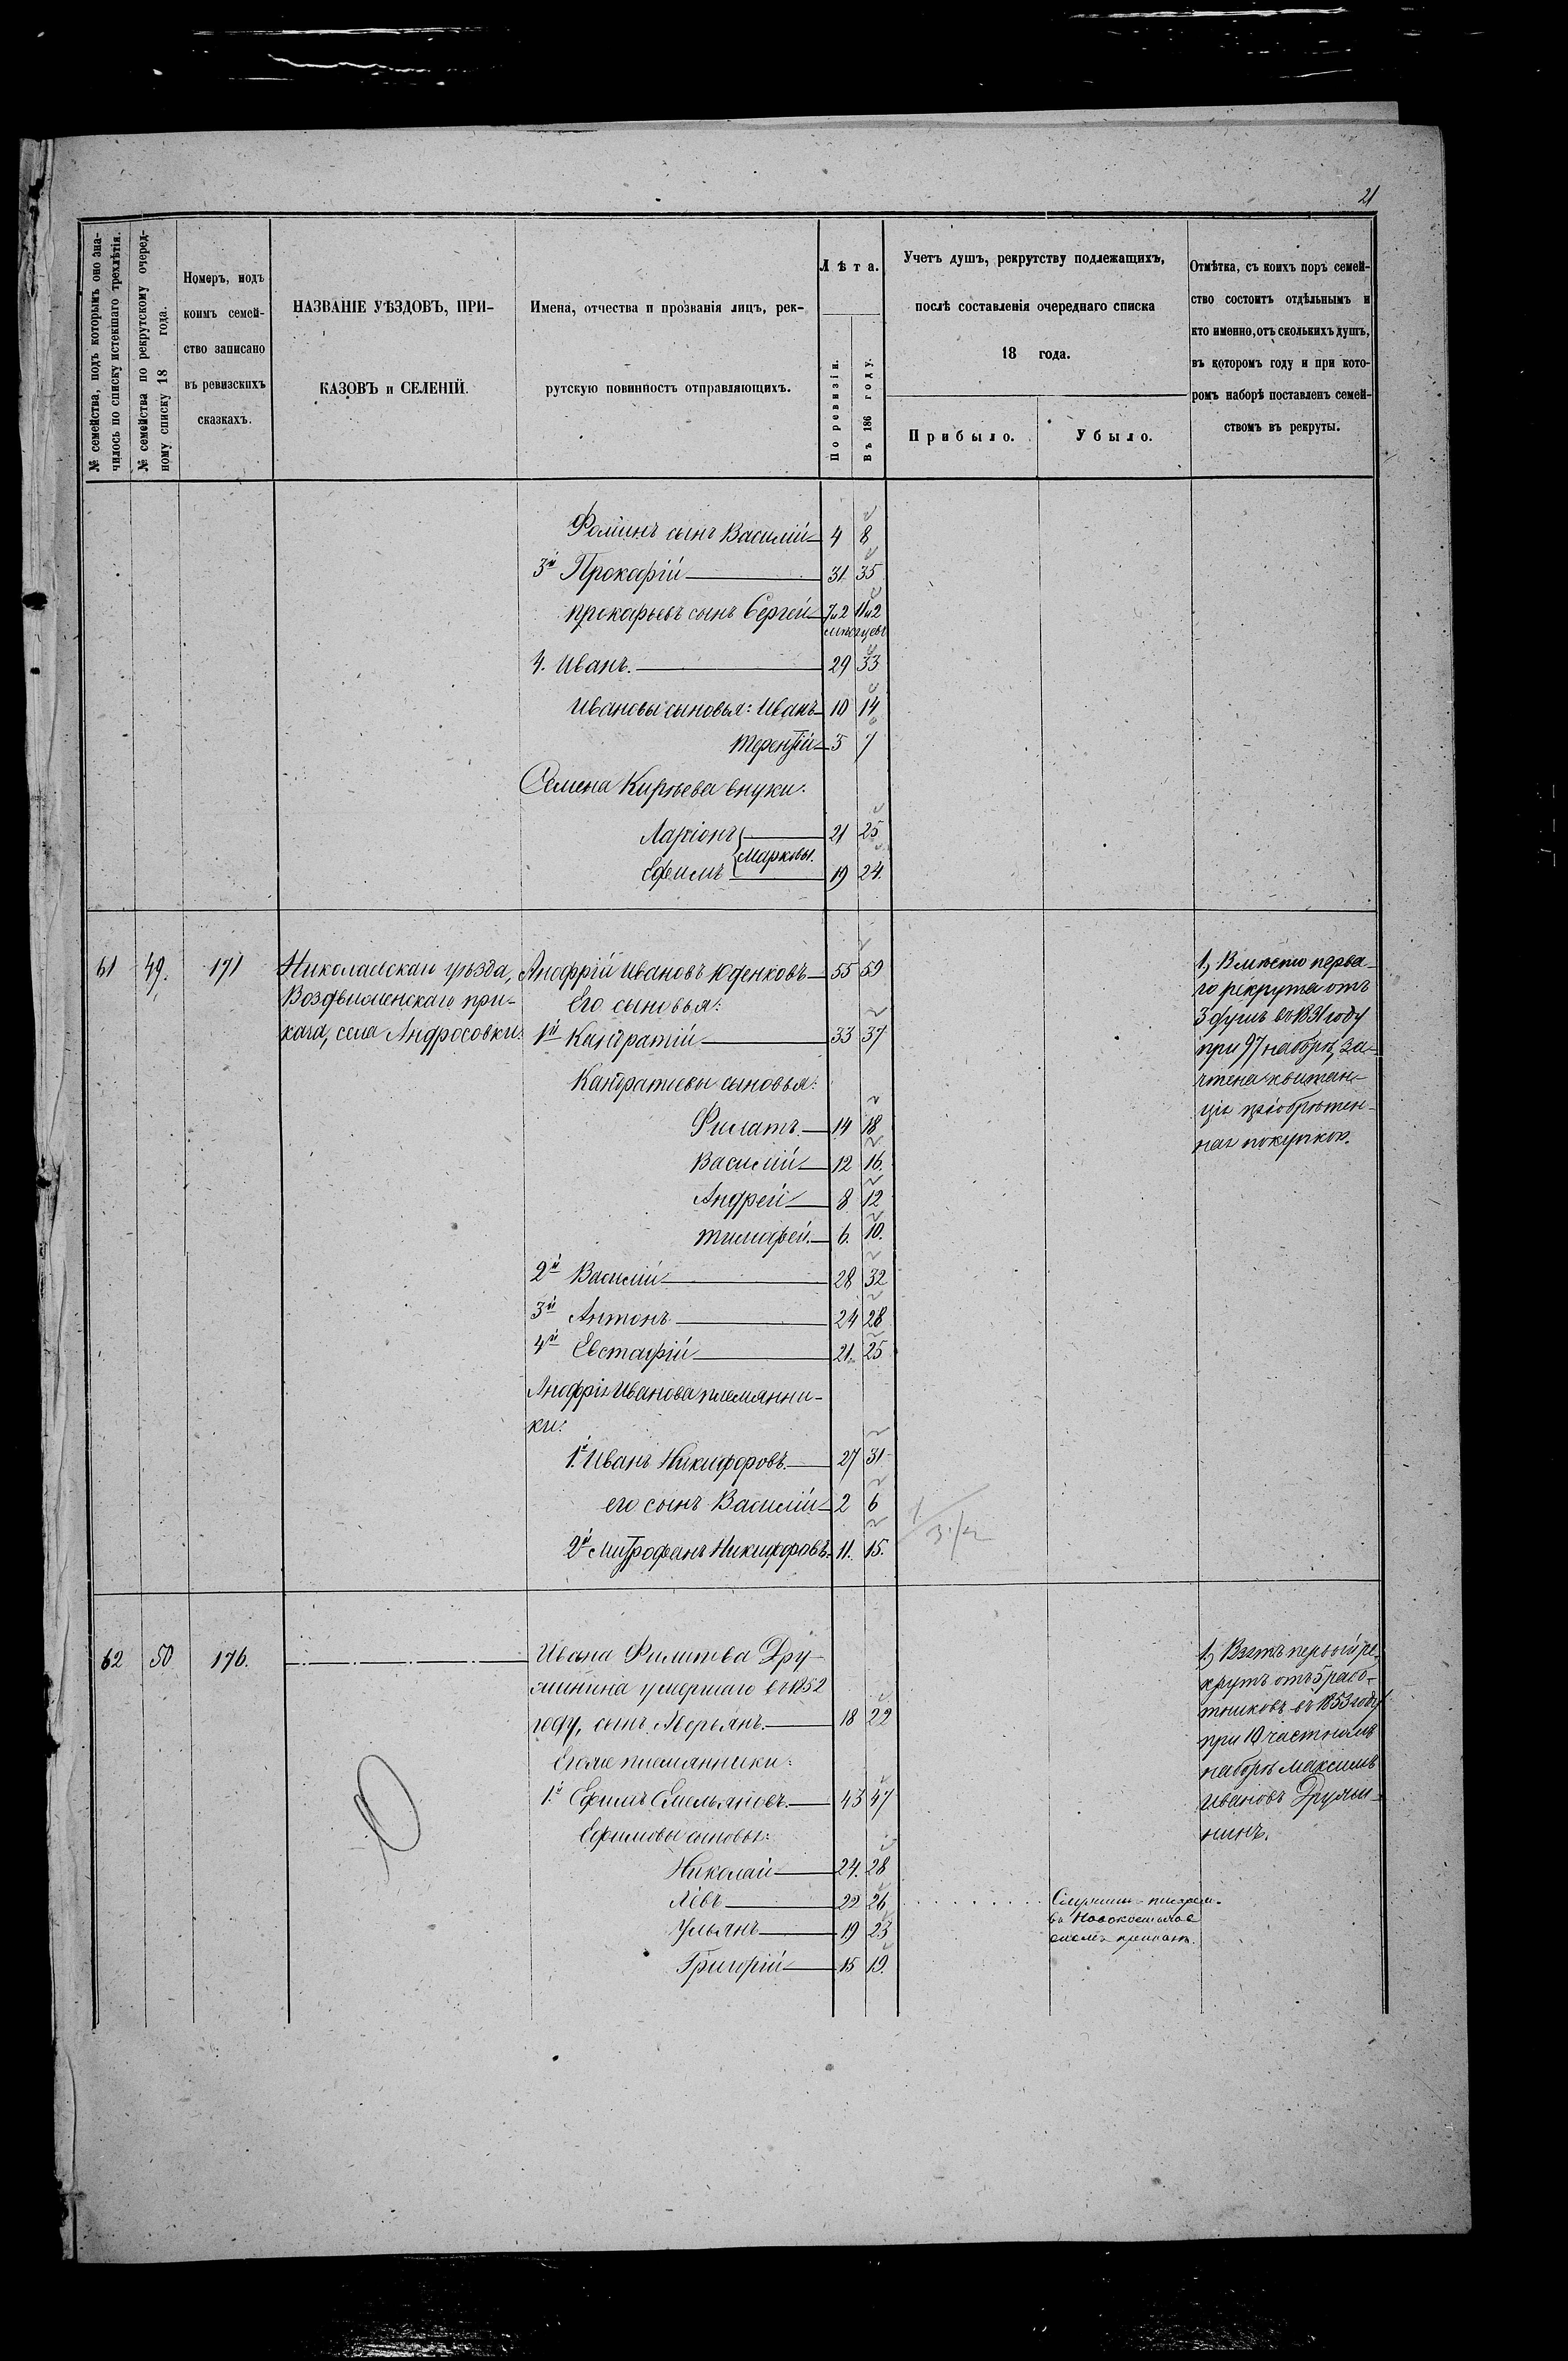 21
№ семейства, подъ которымъ оно зна-
чилось по списку истекшаго трехлѣтія.
№ семейства по рекрутскому очеред-
ному списку 18 года.
Номеръ, подъ
коимъ семей-
ство записано
въ ревизскихъ
сказкахъ.
НАЗВАНІЕ УѢЗДОВЪ, ПРИ-
КАЗОВЪ и СЕЛЕНІЙ.
Имена, отчества и прозванія лицъ, рек-
рутскую повинность отправляющихъ.
Лѣта.
По ревизіи.
Въ 186 году.
Учетъ душъ, рекрутству подлежащихъ,
послѣ составленія очереднаго списка
18 года.
Прибыло.
Убыло.
Отмѣтка, съ коихъ поръ семей-
ство состоитъ отдѣльнымъ и
кто именно, отъ сколькихъ душъ,
въ котором году и при кото-
ромъ наборѣ поставленъ семей-
ствомъ въ рекруты.
Фоминъ сынъ Василій 4 8
3й Прокафій 31 35
Прокафьевъ сынъ Сергей 7и2 11и2
мѣсяцевъ
4. Иванъ. 29 33
Ивановы сыновья: Иванъ 10 14
Терентій 3 7
Семена Кирѣева внуки:
Ларіонъ 21 25
Марковы.
Ефимъ 19 24.
61 49. 171 Николаевскаго уѣзда, Анофрій Ивановъ Юденковъ 55 59
Воздвиженскаго при- Его сыновья:
каза, села Андросовки. 1й Кандратій 33 37
Кандратьевы сыновья:
Филатъ 14 18
Василій 12 16.
Андрей 8 12
Тимофей. 6. 10.
2й Василій 28 32
3й Антонъ 24 28
4й Евстафій 21. 25
Анофрія Иванова племянни-
ки:
1й Иванъ Никифоровъ. 27 31
его сынъ Василій 2 6
2й Митрофанъ Никифоровъ 11. 15.
1, Вмѣсто перва-
го рекрута отъ
3 душъ въ 1831 году
при 97 наборѣ, за-
чтена квитан-
ція пріобрѣтен-
ная покупкою.
62 50 176. Ивана Филипова Дру-
жинина умершаго въ 1852
году, сынъ Аверьянъ. 18 22
Егоже племянники:
1й Ефимъ Емельяновъ. 43 47
Ефимовы сыновья:
Николай 24. 28
Левъ 22 26
Ульянъ 19 23
Григорій 15 19.
въ
1, Взятъ первый ре-
крутъ отъ 5 рабо-
тниковъ въ 1853 году
при 10 частномъ
наборѣ Максимъ
Ивановъ Дружи-
нинъ.